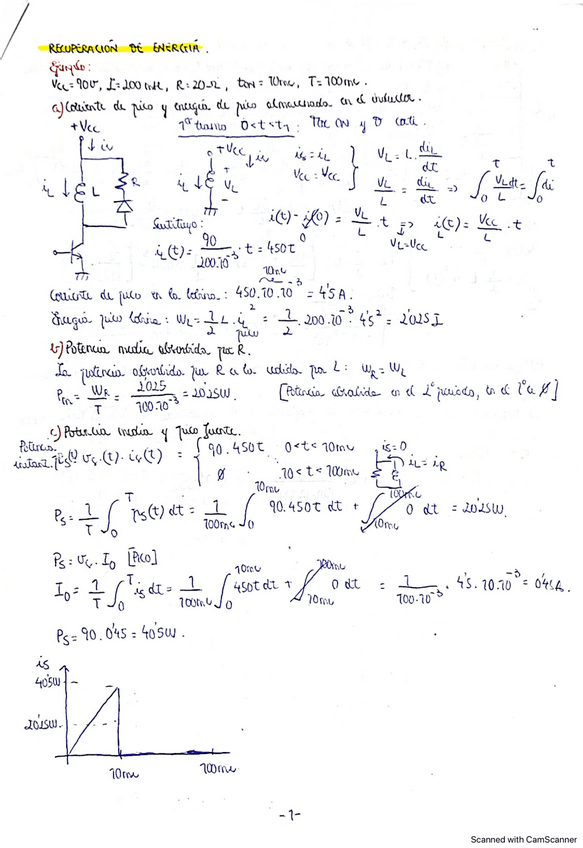 RECUPERACIÓN DE ENERGÍA.
Ejemplo:
Vcc = 90V, L = 200mH, R = 20Ω, ton = 10ms, T = 100ms.
a) Corriente de pico y energía de pico almacenada en el inductor.
+Vcc
1er tramo 0<t<t1 : TRC ON y D corte.
↓ iL
+Vcc ↓ is
is = iL
Vcc = VL
VL = L · diL/dt
VL/L = diL/dt => ∫0^t VL/L dt = ∫0^t di
iL ↓ L R
iL ↓ + VL -
i(t) - i(0) = VL/L · t => i(t) = Vcc/L · t
0
VL=Vcc
Sustituyo:
iL(t) = 90/200·10^-3 · t = 450t
10ms
Corriente de pico en la bobina: 450·10·10^-3 = 4'5 A.
Energía pico bobina: WL = 1/2 L · i²pico = 1/2 · 200·10^-3 · 4'5² = 2'025 J
b) Potencia media absorbida por R.
La potencia absorbida por R es la cedida por L: WR = WL
Pm = WR/T = 2'025/100·10^-3 = 20'25W. [Potencia absorbida en el 2º periodo, en el 1º es Ø]
c) Potencia media y pico fuente.
Potencia instant. ps(t) = vs(t) · is(t) = { 90·450t 0<t<10ms
Ø 10<t<100ms
is=0
iL = iR
Ps = 1/T ∫0^T ps(t) dt = 1/100ms ∫0^10ms 90·450t dt + ∫10ms^100ms 0 dt = 20'25W.
Ps = vs · I0 [Pico]
I0 = 1/T ∫0^T is dt = 1/100ms ∫0^10ms 450t dt + ∫10ms^100ms 0 dt = 1/100·10^-3 · 4'5 · 10·10^-3 = 0'45A.
Ps = 90 · 0'45 = 40'5W.
is
40'5W
20'25W.
10ms 100ms
-1-
Scanned with CamScanner